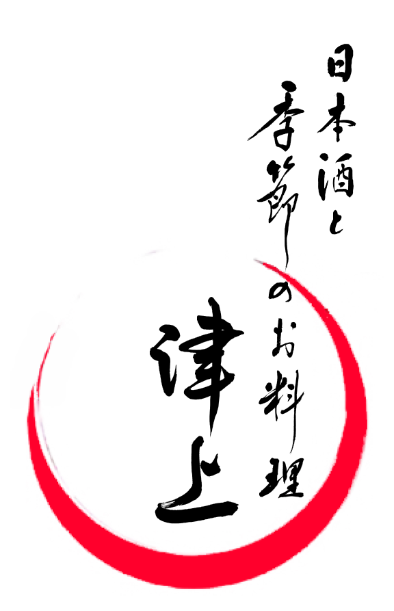 日本酒と
季節のお料理
津上